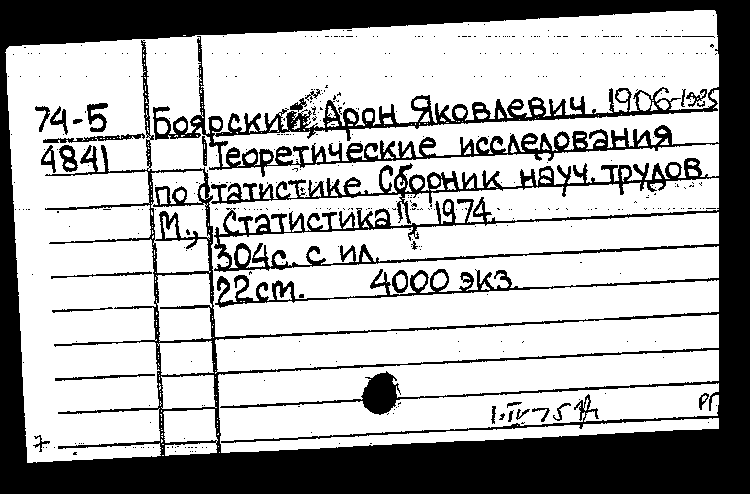 74-5 Боярский, Арон Яковлевич. 1906-1985
4841 Теоретические исследования
по статистике. Сборник науч. трудов.
М., „Статистика", 1974.
304с. с ил.
22cm. 4000 экз.
1.IV-75
РГ
7